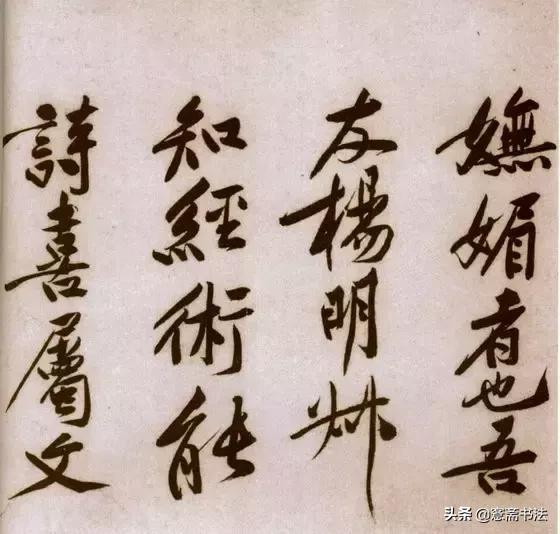 嫵媚者也吾
友楊明叔
知經術能
詩喜屬文
头条 @愙斋书法